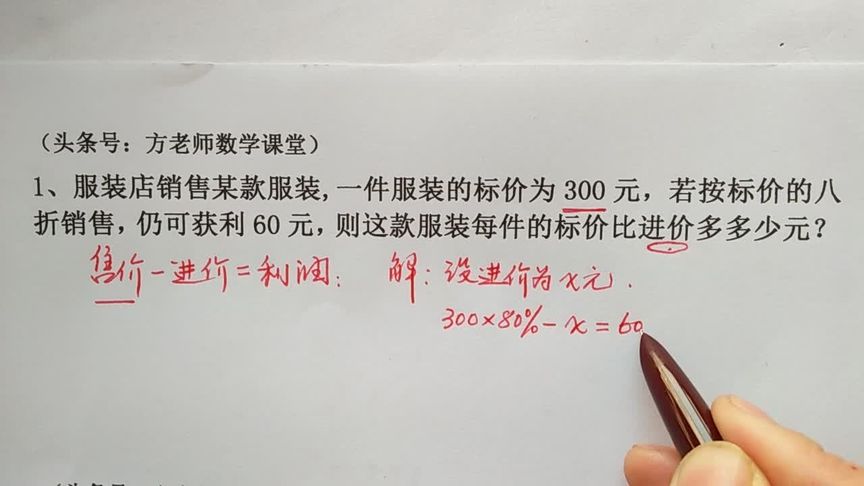 （头条号：方老师数学课堂）
1、服装店销售某款服装，一件服装的标价为 300 元，若按标价的八
折销售，仍可获利 60 元，则这款服装每件的标价比进价多多少元？
售价－进价＝利润； 解：设进价为x元．
300×80%－x＝60